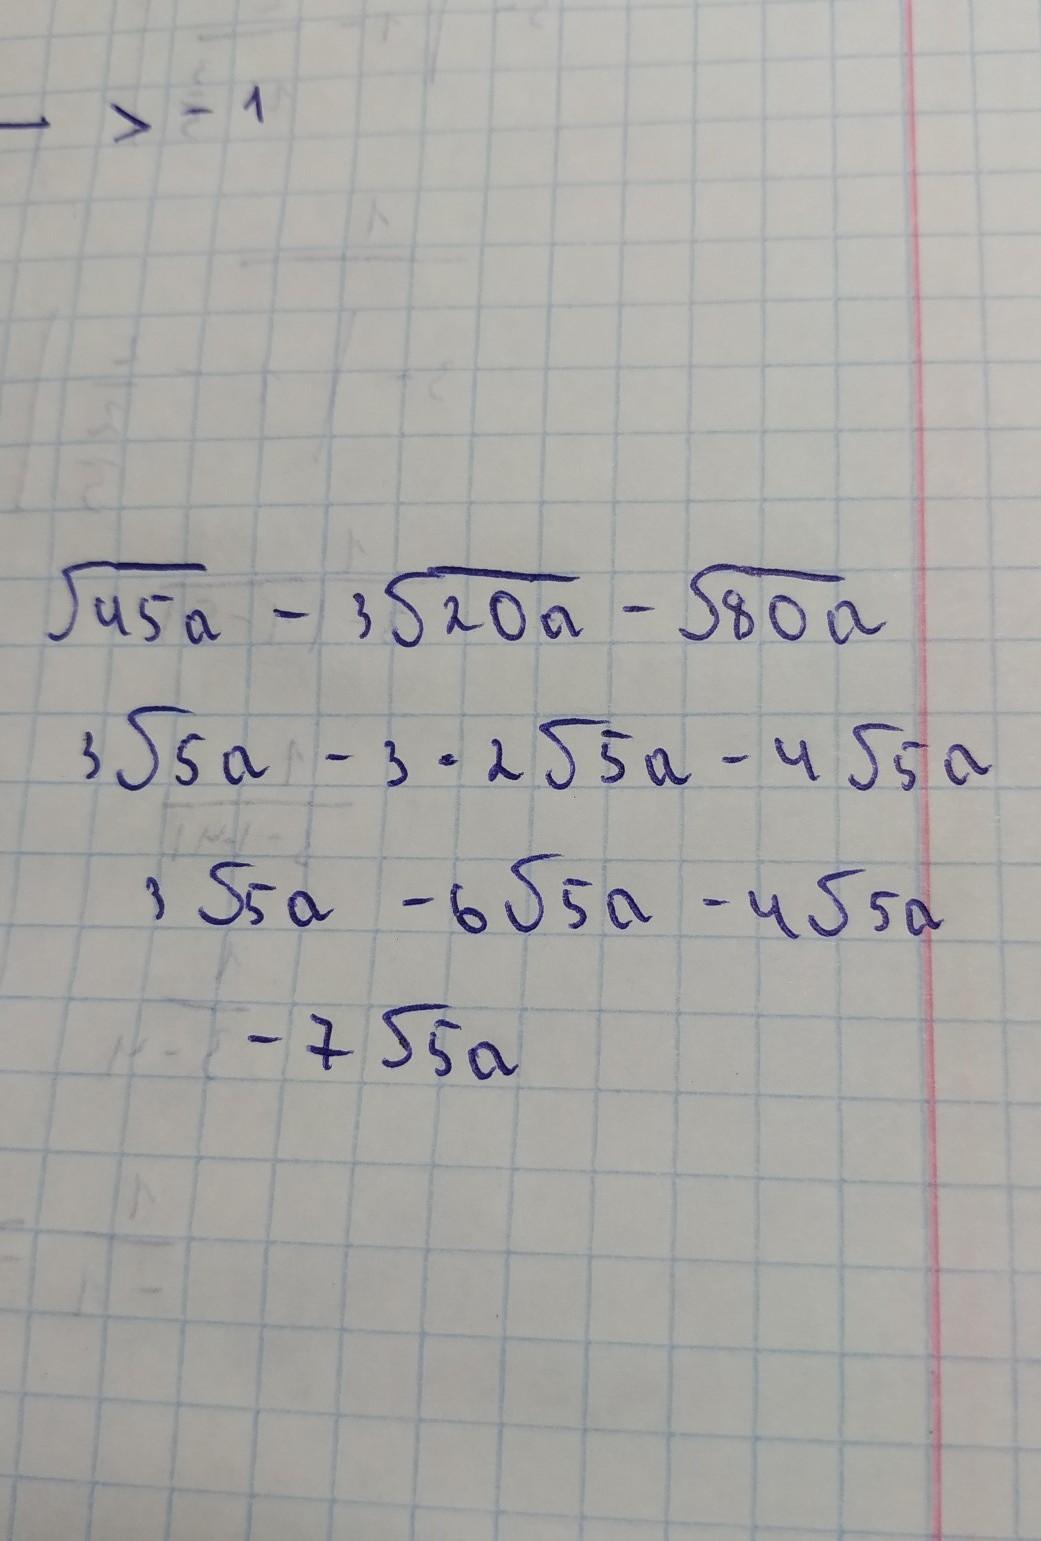 > - 1
√45a - 3√20a - √80a
3√5a - 3 · 2√5a - 4√5a
3√5a - 6√5a - 4√5a
- 7√5a